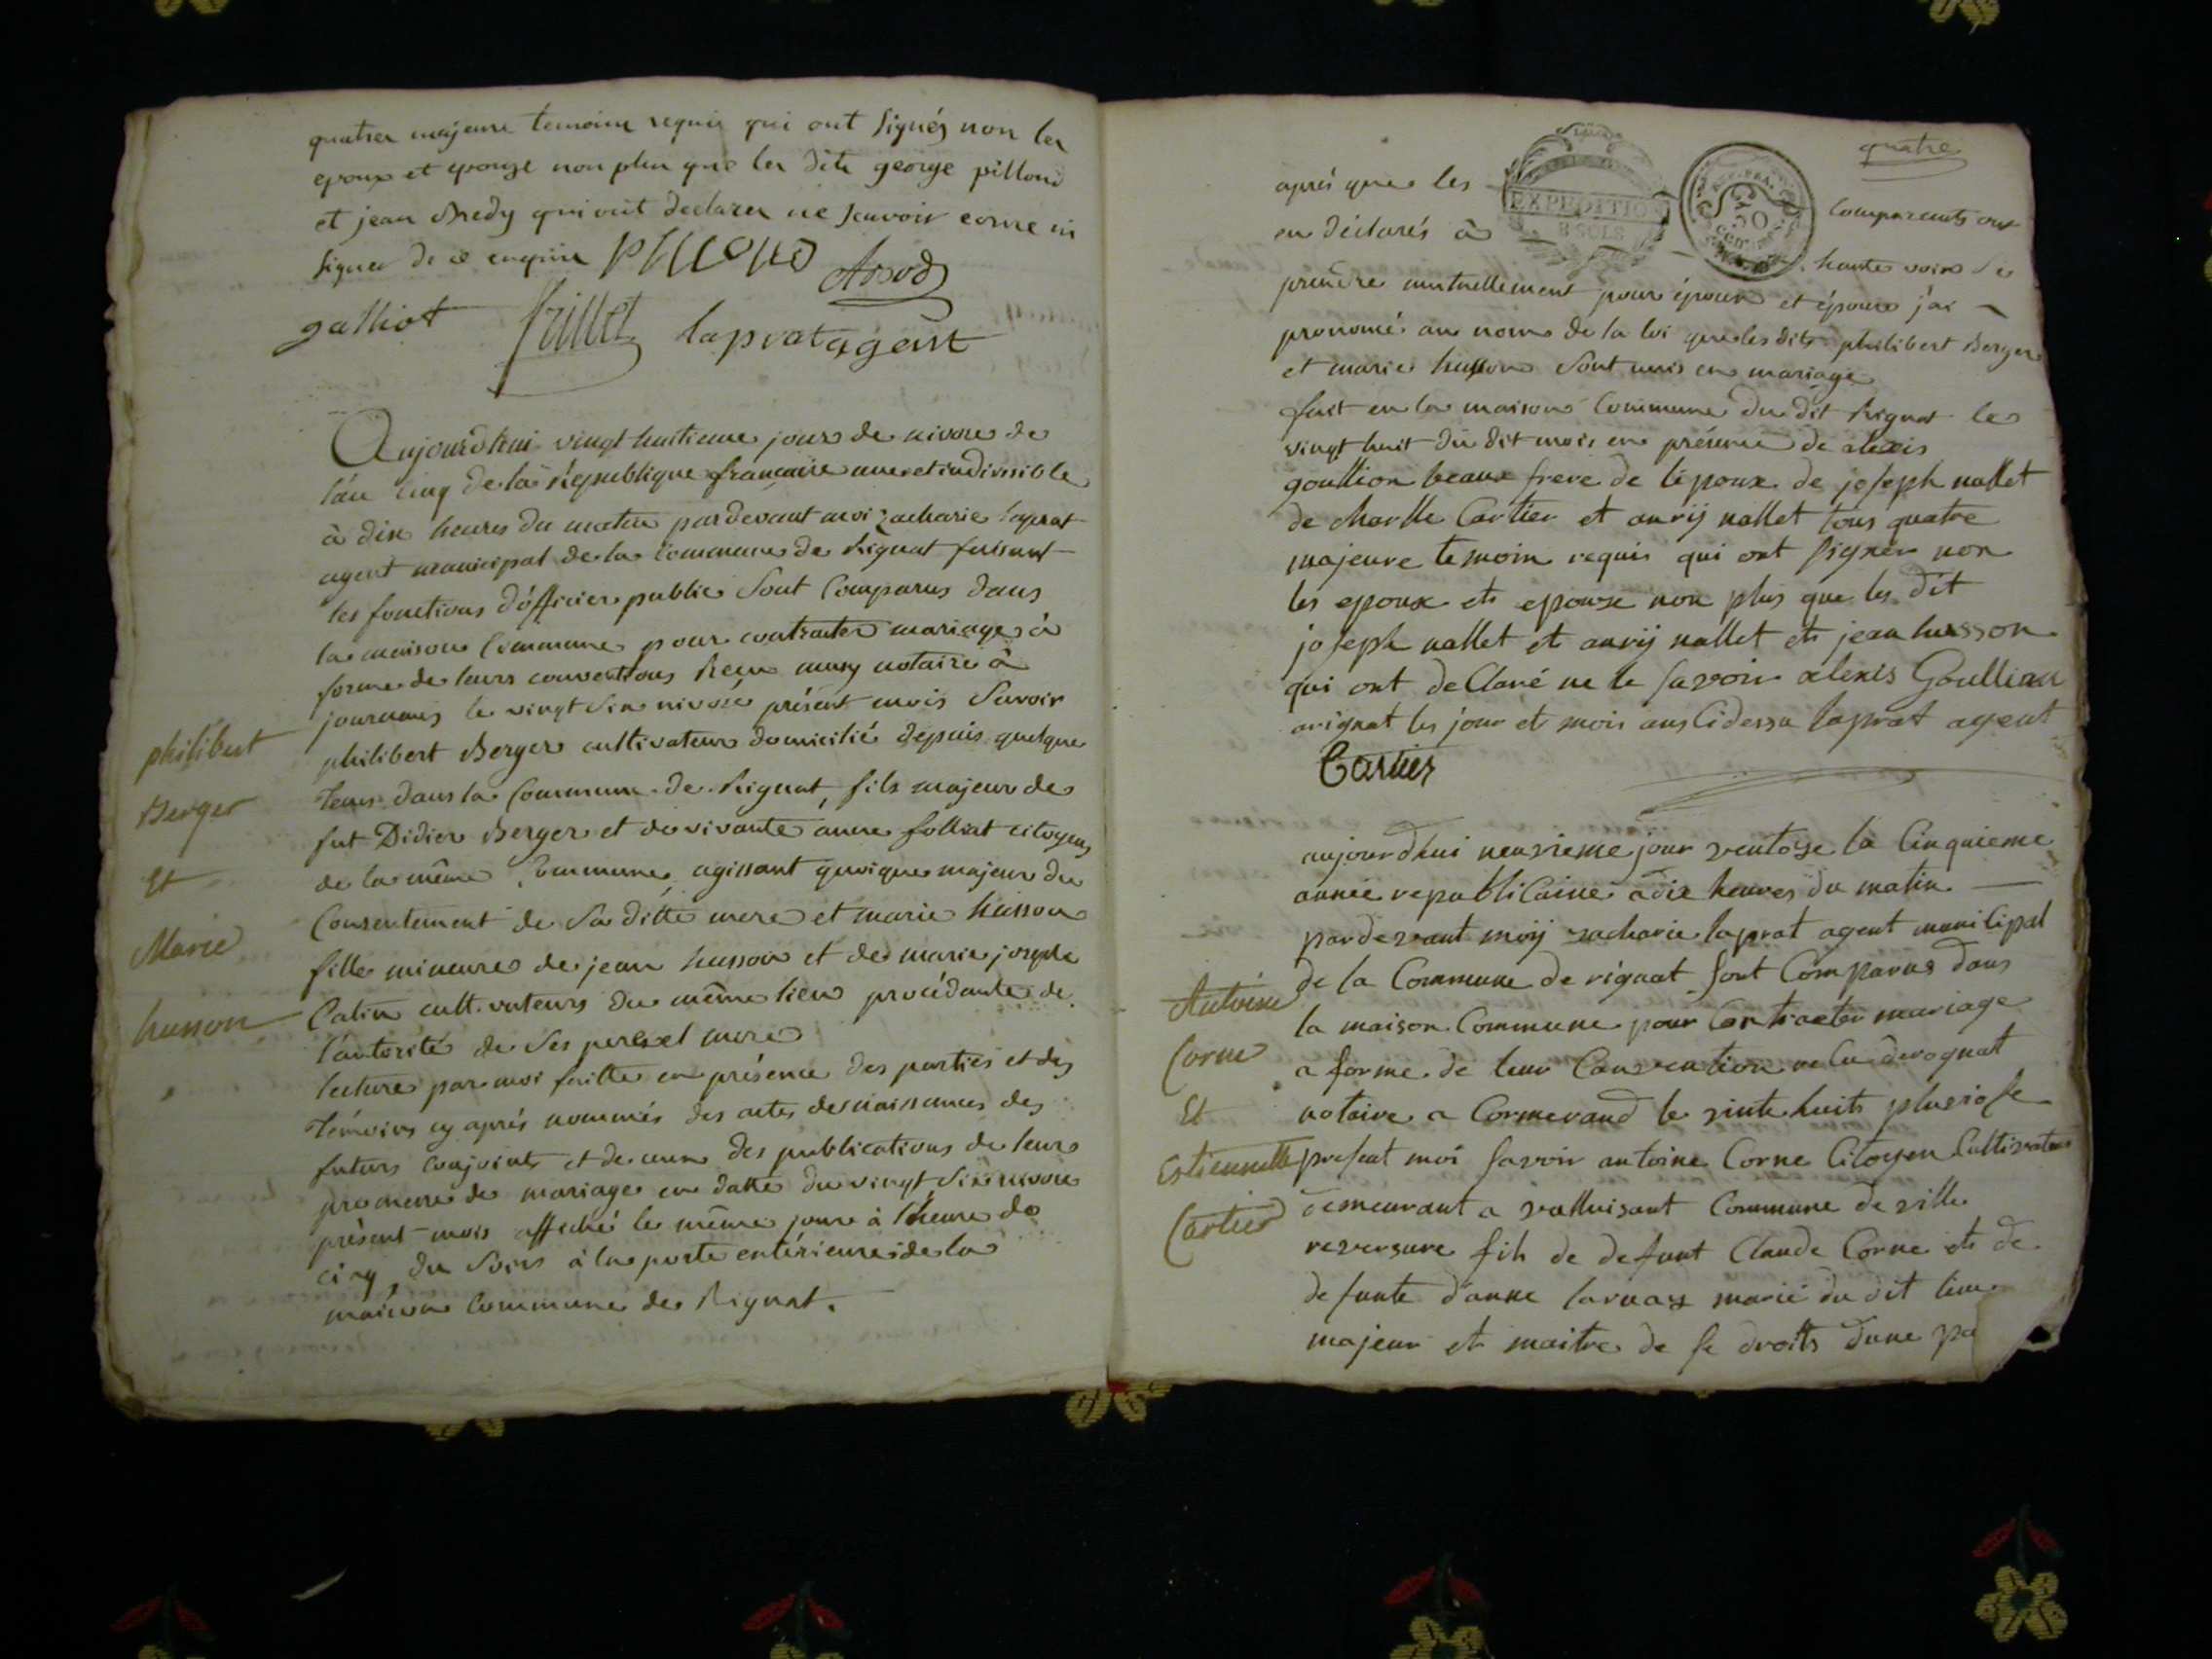 quatres majeure temoins requis qui ont signés non les
epoux et epouse non plus que les dits george pillond
et jean Bredy qui ont declarez ne scavoir ecrire ni
signer de ce enquis
galliot frillet laprat agent
Aujourd'hui vingt huitieme jour de nivose de
l'an cinq de la République française une et indivisible
à dix heures du matin pardevant moi zacharie laprat
agent municipal de la Commune de Rignat faisant
les fonctions d'officier public sont Comparus dans
la maison Commune pour contracter mariage à
forme de leurs conventions Reçu notaire à
journans le vingt six nivose présent mois savoir
philibert Berger cultivateur domicilié depuis quelque
tems dans la Commune de Rignat, fils majeur de
fut Didier Berger et de vivante anne folliat citoyens
de la même Commune agissant quoique majeur du
Consentement de sa ditte mere et marie husson
fille mineure de jean husson et de marie josephe
Catin cultivateurs du même lieu procédante de
l'autorité de ses pere et mere
lecture par moi faitte en présence des parties et des
témoins cy aprés nommés des actes de naissances des
futurs conjoints et de ceux des publications de leurs
promesse de mariage en datte du vingt six nivose
présent mois affiché le même jour à l'heure de
cinq du soirs à la porte extérieure de la
maison Commune de Rignat.
philibert
Berger
Et
Marie
husson
quatre
EXPEDITION
8 SOLS
50
aprés que les comparants ont
en déclarés à haute voix se
prendre mutuellement pour époux et épouse j'ai
prononcé au nom de la loi que les dits philibert Berger
et marie husson sont unis en mariage
fait en la maison Commune du dit Rignat le
vingt huit du dit mois en présence de alexis
goullion beaux frere de lépoux de joseph nallet
de Charlle Cartier et anrij nallet tous quatre
majeure temoin requis qui ont signer non
les epoux et epouse non plus que les dit
joseph nallet et anrij nallet et jean husson
qui ont declaré ne le savoir alexis Goullion
arignat les jour et mois ans Cidessu laprat agent
Cartier
aujourdhui neuvieme jour ventose la Cinquieme
année republicaine a dix heures du matin
pardevant moij zacharie laprat agent municipal
de la Commune de rignat sont Comparus dans
la maison Commune pour Contracter mariage
a forme de leur Convention
notaire a Cormerand le vinte huits pluviose
present moi savoir antoine Corne Citoyen Cultivateur
demeurant a valluisant Commune de ville
reversure fils de defunt Claude Corne et de
defunte danne marié du dit lieu
majeur et maitre de se droits dune pa
Antoine
Corne
Et
Estiennette
Cartier